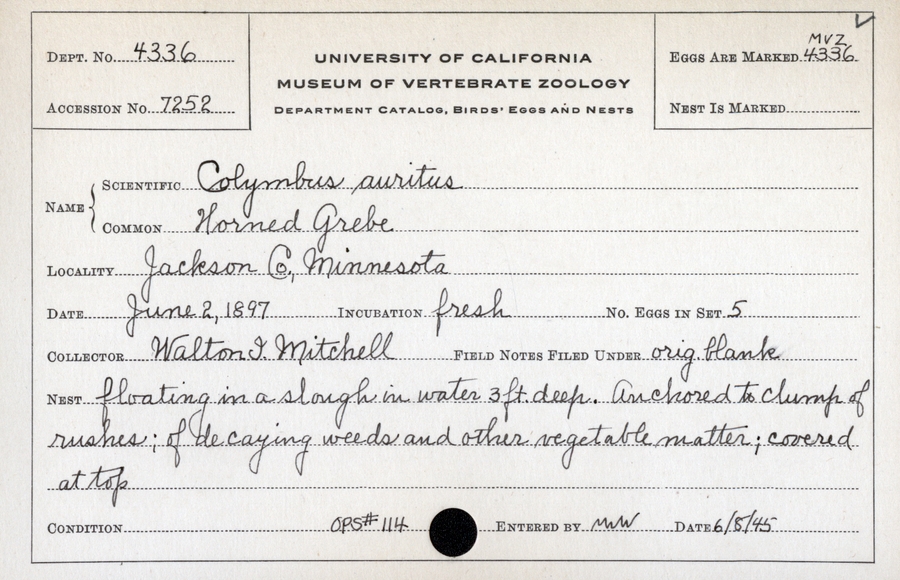 DEPT. NO. 4336
ACCESSION NO. 7252
UNIVERSITY OF CALIFORNIA
MUSEUM OF VERTEBRATE ZOOLOGY
DEPARTMENT CATALOG, BIRDS' EGGS AND NESTS
MVZ
EGGS ARE MARKED 4336
NEST IS MARKED
NAME
SCIENTIFIC Colymbus auritus
COMMON Horned Grebe
LOCALITY Jackson Co., Minnesota
DATE June 2, 1897 INCUBATION fresh NO. EGGS IN SET 5
COLLECTOR Walton I. Mitchell FIELD NOTES FILED UNDER orig. blank
NEST floating in a slough in water 3 ft. deep. Anchored to clump of
rushes; of decaying weeds and other vegetable matter; covered
at top
CONDITION OPS# 114 ENTERED BY MWW DATE 6/8/45